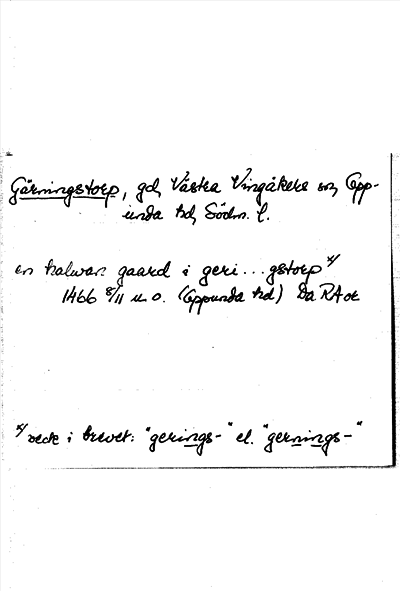 Gärningstorp, gd, Västra Vingåkers sn, Opp-
unda hd, Södm. l.
en halwan gaard i geri...gstorp x/
1466 8/11 u. o. (Oppunda hd) Da RA or
x/ veck i brevet: "gerings-" el. "gernings-"